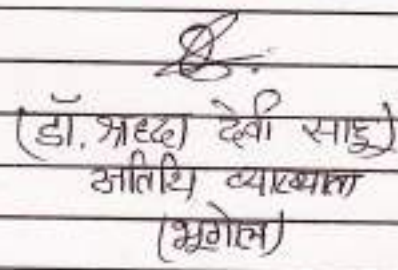 (डॉ. श्रद्धा देवी साहू)
अतिथि व्याख्याता
(भूगोल)